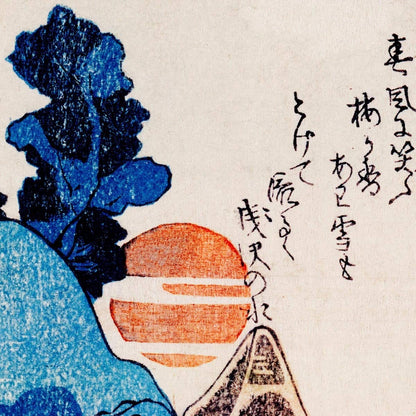 春風に笑ふ
梅が香
あら雪も
とけて
流るゝ
浅沢の水